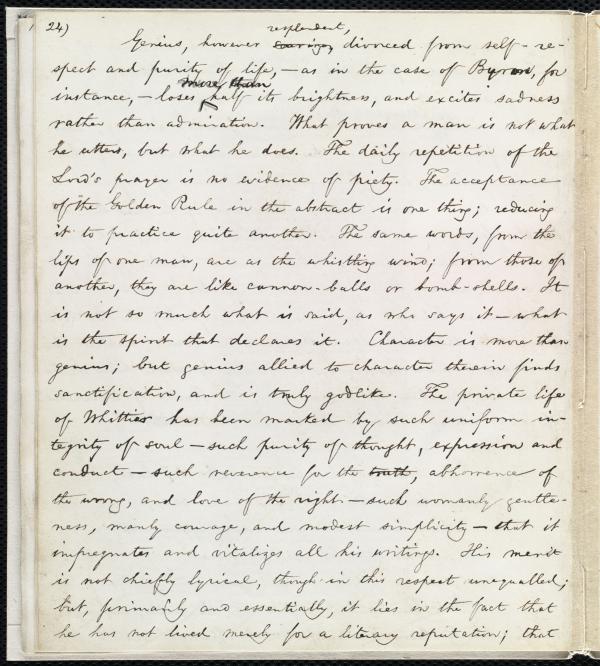 24)
resplendent,
Genius, however soaring, divorced from self-re-
spect and purity of life, — as in the case of Byron, for
more than
instance, — loses half its brightness, and excites sadness
rather than admiration. What proves a man is not what
he utters, but what he does. The daily repetition of the
Lord's prayer is no evidence of piety. The acceptance
of the Golden Rule in the abstract is one thing; reducing
it to practice quite another. The same words, from the
lips of one man, are as the whistling wind; from those of
another, they are like cannon-balls or bomb-shells. It
is not so much what is said, as who says it — what
is the spirit that declares it. Character is more than
genius; but genius allied to character therein finds
sanctification, and is truly godlike. The private life
of Whittier has been marked by such uniform in-
tegrity of soul — such purity of thought, expression and
conduct — such reverence for the truth, abhorrence of
the wrong, and love of the right — such womanly gentle-
ness, manly courage, and modest simplicity — that it
impregnates and vitalizes all his writings. His merit
is not chiefly lyrical, though in this respect unequalled;
but, primarily and essentially, it lies in the fact that
he has not lived merely for a literary reputation; that